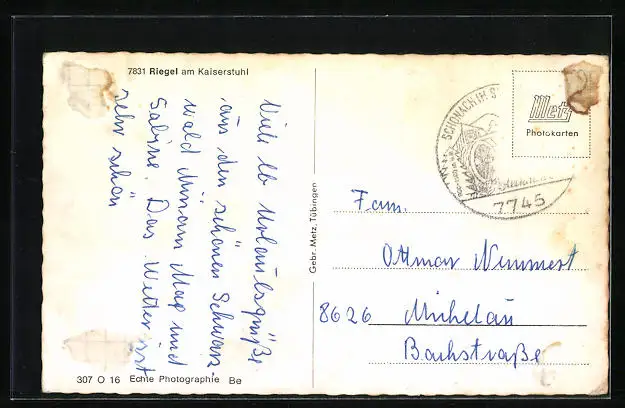 7831 Riegel am Kaiserstuhl
Viele lb Urlaubsgrüße
aus den schönen Schwarz-
wald Miriam Max und
Sabine. Das Wetter ist
sehr schön
307 O 16 Echte Photographie Be
Gebr. Metz, Tübingen
SCHONACH IM S
7745
Metz
Photokarten
Fam.
Ottmar Nemmert
8626 Michelau
Bachstraße